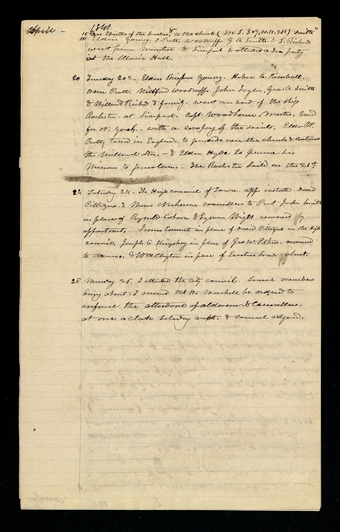 April —
1841
to the church
Elders Young, & Pratt, Woodruff G A Smith & L Richards
went from Manchester to Liverpool & attended a tea party
at the Music Hall.
20 Tuesday 20— Elders Brigham Young, Heber C Kimball,
Orson Pratt, Wilford Woodruff John Taylor, Geo A Smith
& Willard Richards & family went on board of the ship
Rochester, at Liverpool, Capt Woodhouse, Master, bound
for N. York — with a company of the saints, Elder P.
Pratt, tarried in England, to preside over the church & continue
the Millennial Star, — & Elder Hyde to pursue his
Mission to Jerusalem. The Rochester sailed on the 21st
24 Saturday 24. The High council of Iowa appointed David
Pettigrew, & Moses Nickerson counsellors to Prest John Smith
in place of Reynolds Cahoon & Lyman Wight removed by
appointment, James Emmett in place of David Pettigrew in the high
council, Joseph C Kingsbury in place of removed
to Nauvoo. & Wm Clayton in place of Erastus Snow absent.
26 Monday 26. I attended the city council. Several members
being absent. I moved that the Marshall be ordered to
enforce the attendance of aldermen & Councillors,
at one o clock Saturday next. & council adjourned.